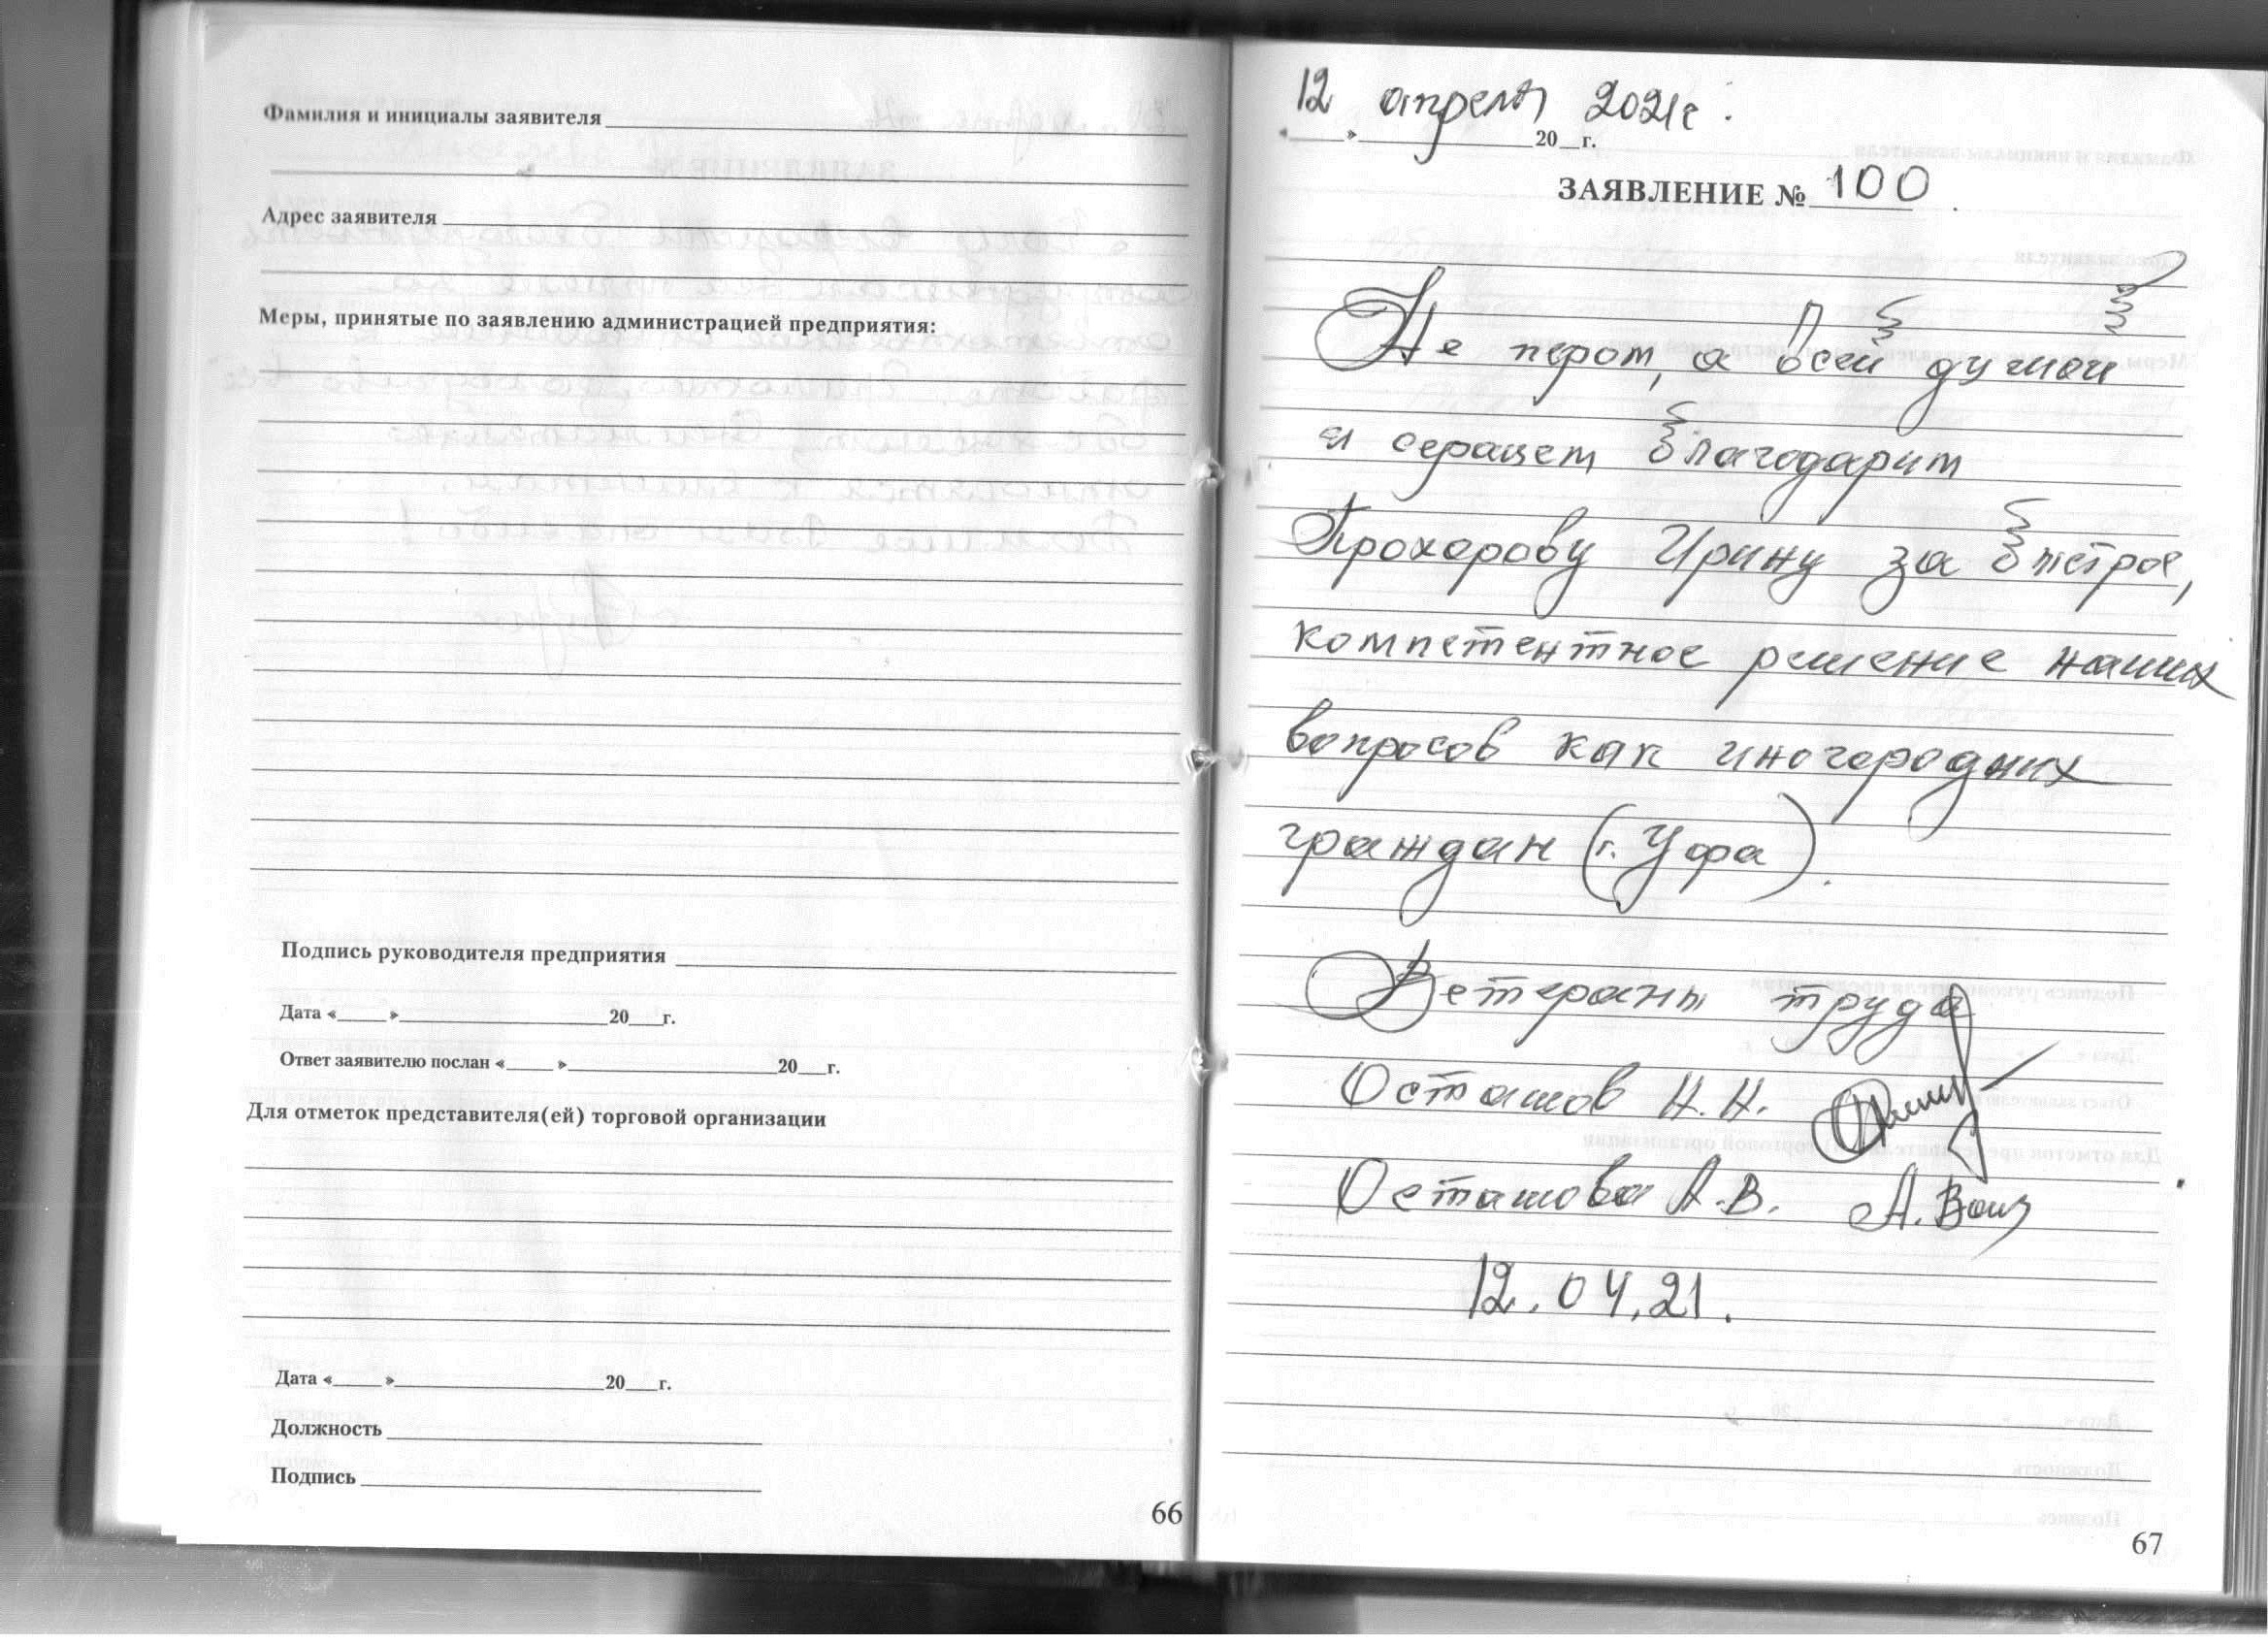 Фамилия и инициалы заявителя
Адрес заявителя
Меры, принятые по заявлению администрацией предприятия:
Подпись руководителя предприятия
Дата «____»____20__г.
Ответ заявителю послан «____»____20__г.
Для отметок представителя(ей) торговой организации
Дата «____»____20__г.
Должность
Подпись
66
12 апреля 2021г.
«____»____20__г.
ЗАЯВЛЕНИЕ № 100
Не пером, а всей душой
и сердцем благодарим
Прохорову Ирину за быстрое,
компетентное решение наших
вопросов как иногородних
граждан (г. Уфа).
Ветераны труда
Осташов Н.Н.
Осташова А.В.
12.04.21.
67